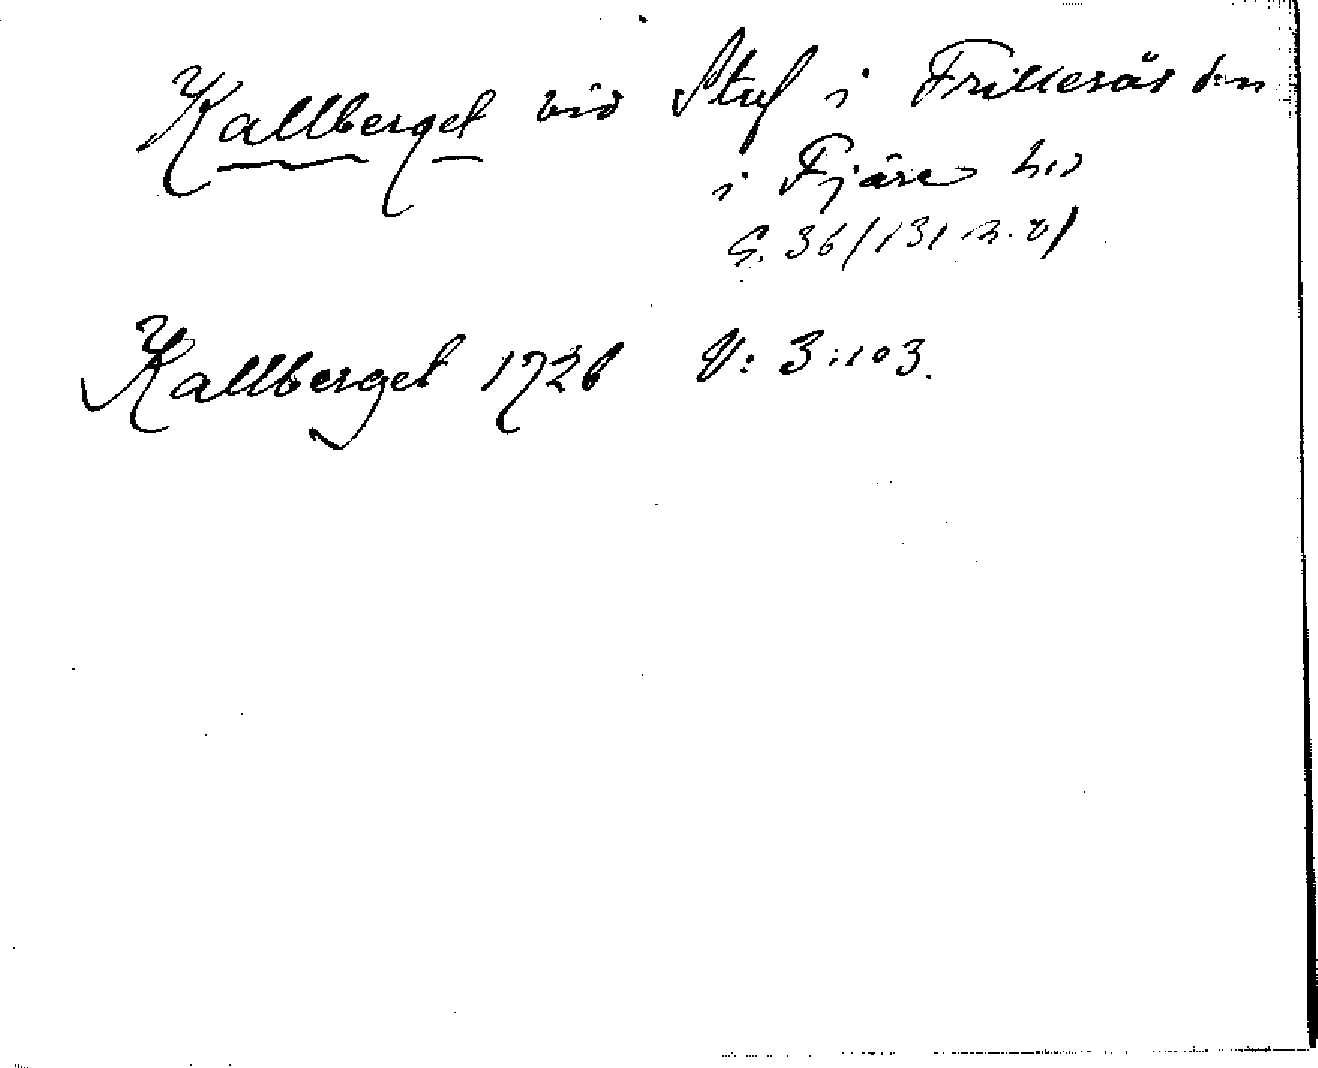 Kallberget vid Stuf i Frillesås sn
i Fjäre hd
G. 36 (131 n. ö)
Kallberget 1726 V: 3:103.